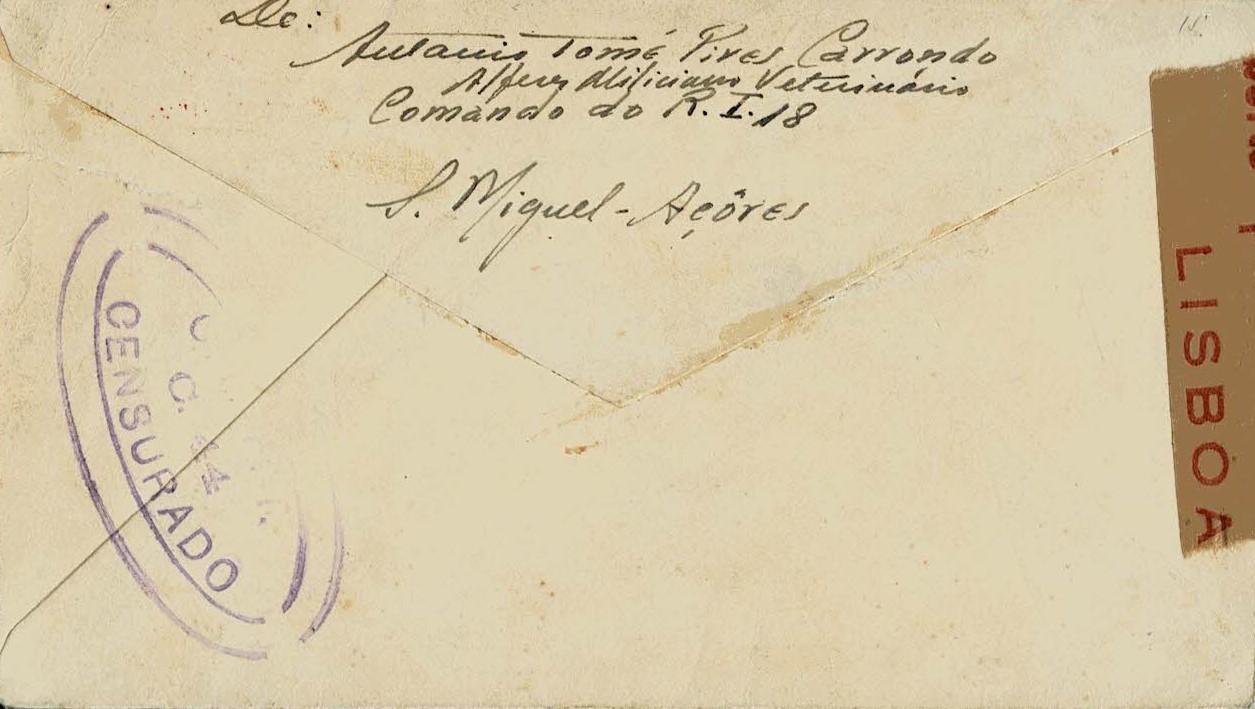 De:
Antonio Tomé Pires Carrondo
Alferes Miliciano Veterinário
Comando do R. I. 18
S. Miguel - Açôres
C. 44
CENSURADO
LISBOA